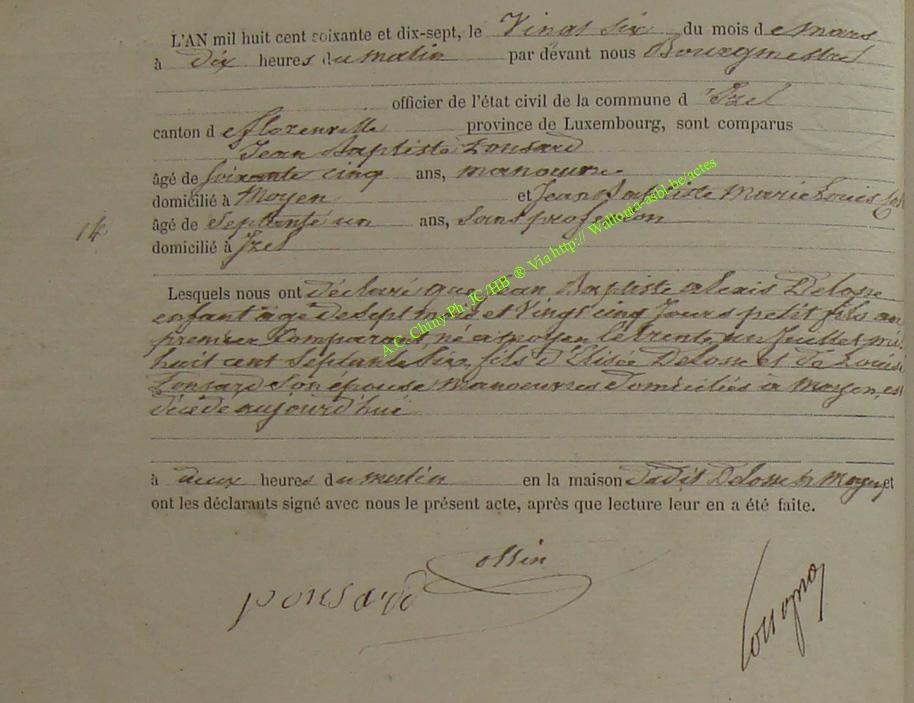 L'AN mil huit cent soixante et dix-sept, le Vingt Six du mois de mars
à dix heures du matin par devant nous Bourgmestre
officier de l'état civil de la commune d'Izel
canton de florenville province de Luxembourg, sont comparus
Jean Baptiste Ponsard
âgé de soixante cinq ans, manœuvre
domicilié à Moyen et Jean Baptiste Marie Louis
14 âgé de Septante un ans, Sans profession
domicilié à Izel
Lesquels nous ont déclaré que Jean Baptiste alexis Delosse
enfant âgé de sept mois et Vingt cinq Jours petit fils au
premier Comparant, né a moyen le trente un Juillet mil
huit cent Septante Six, fils d'Elisée Delosse et de Louise
Ponsard son épouse manoeuvres domiciliés à Moyen, est
décédé aujourd'hui
à deux heures du matin en la maison dudit Delosse à Moyen, et
ont les déclarants signé avec nous le présent acte, après que lecture leur en a été faite.
ponsard
A.C. Chiny Ph. JC/HB ® Via http:// Wallonia-asbl.be/actes